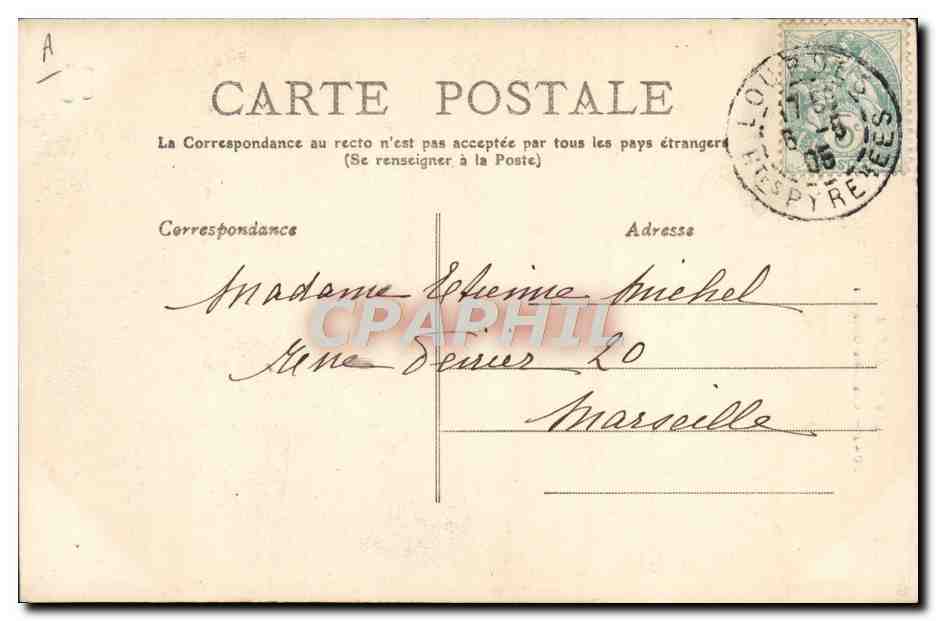 A
CARTE POSTALE
La Correspondance au recto n'est pas acceptée par tous les pays étrangers
(Se renseigner à la Poste)
LOURDES
Htes PYRENEES
5
Correspondance
Adresse
Madame Etienne Michel
CPAPHIL
Rue 20
Marseille